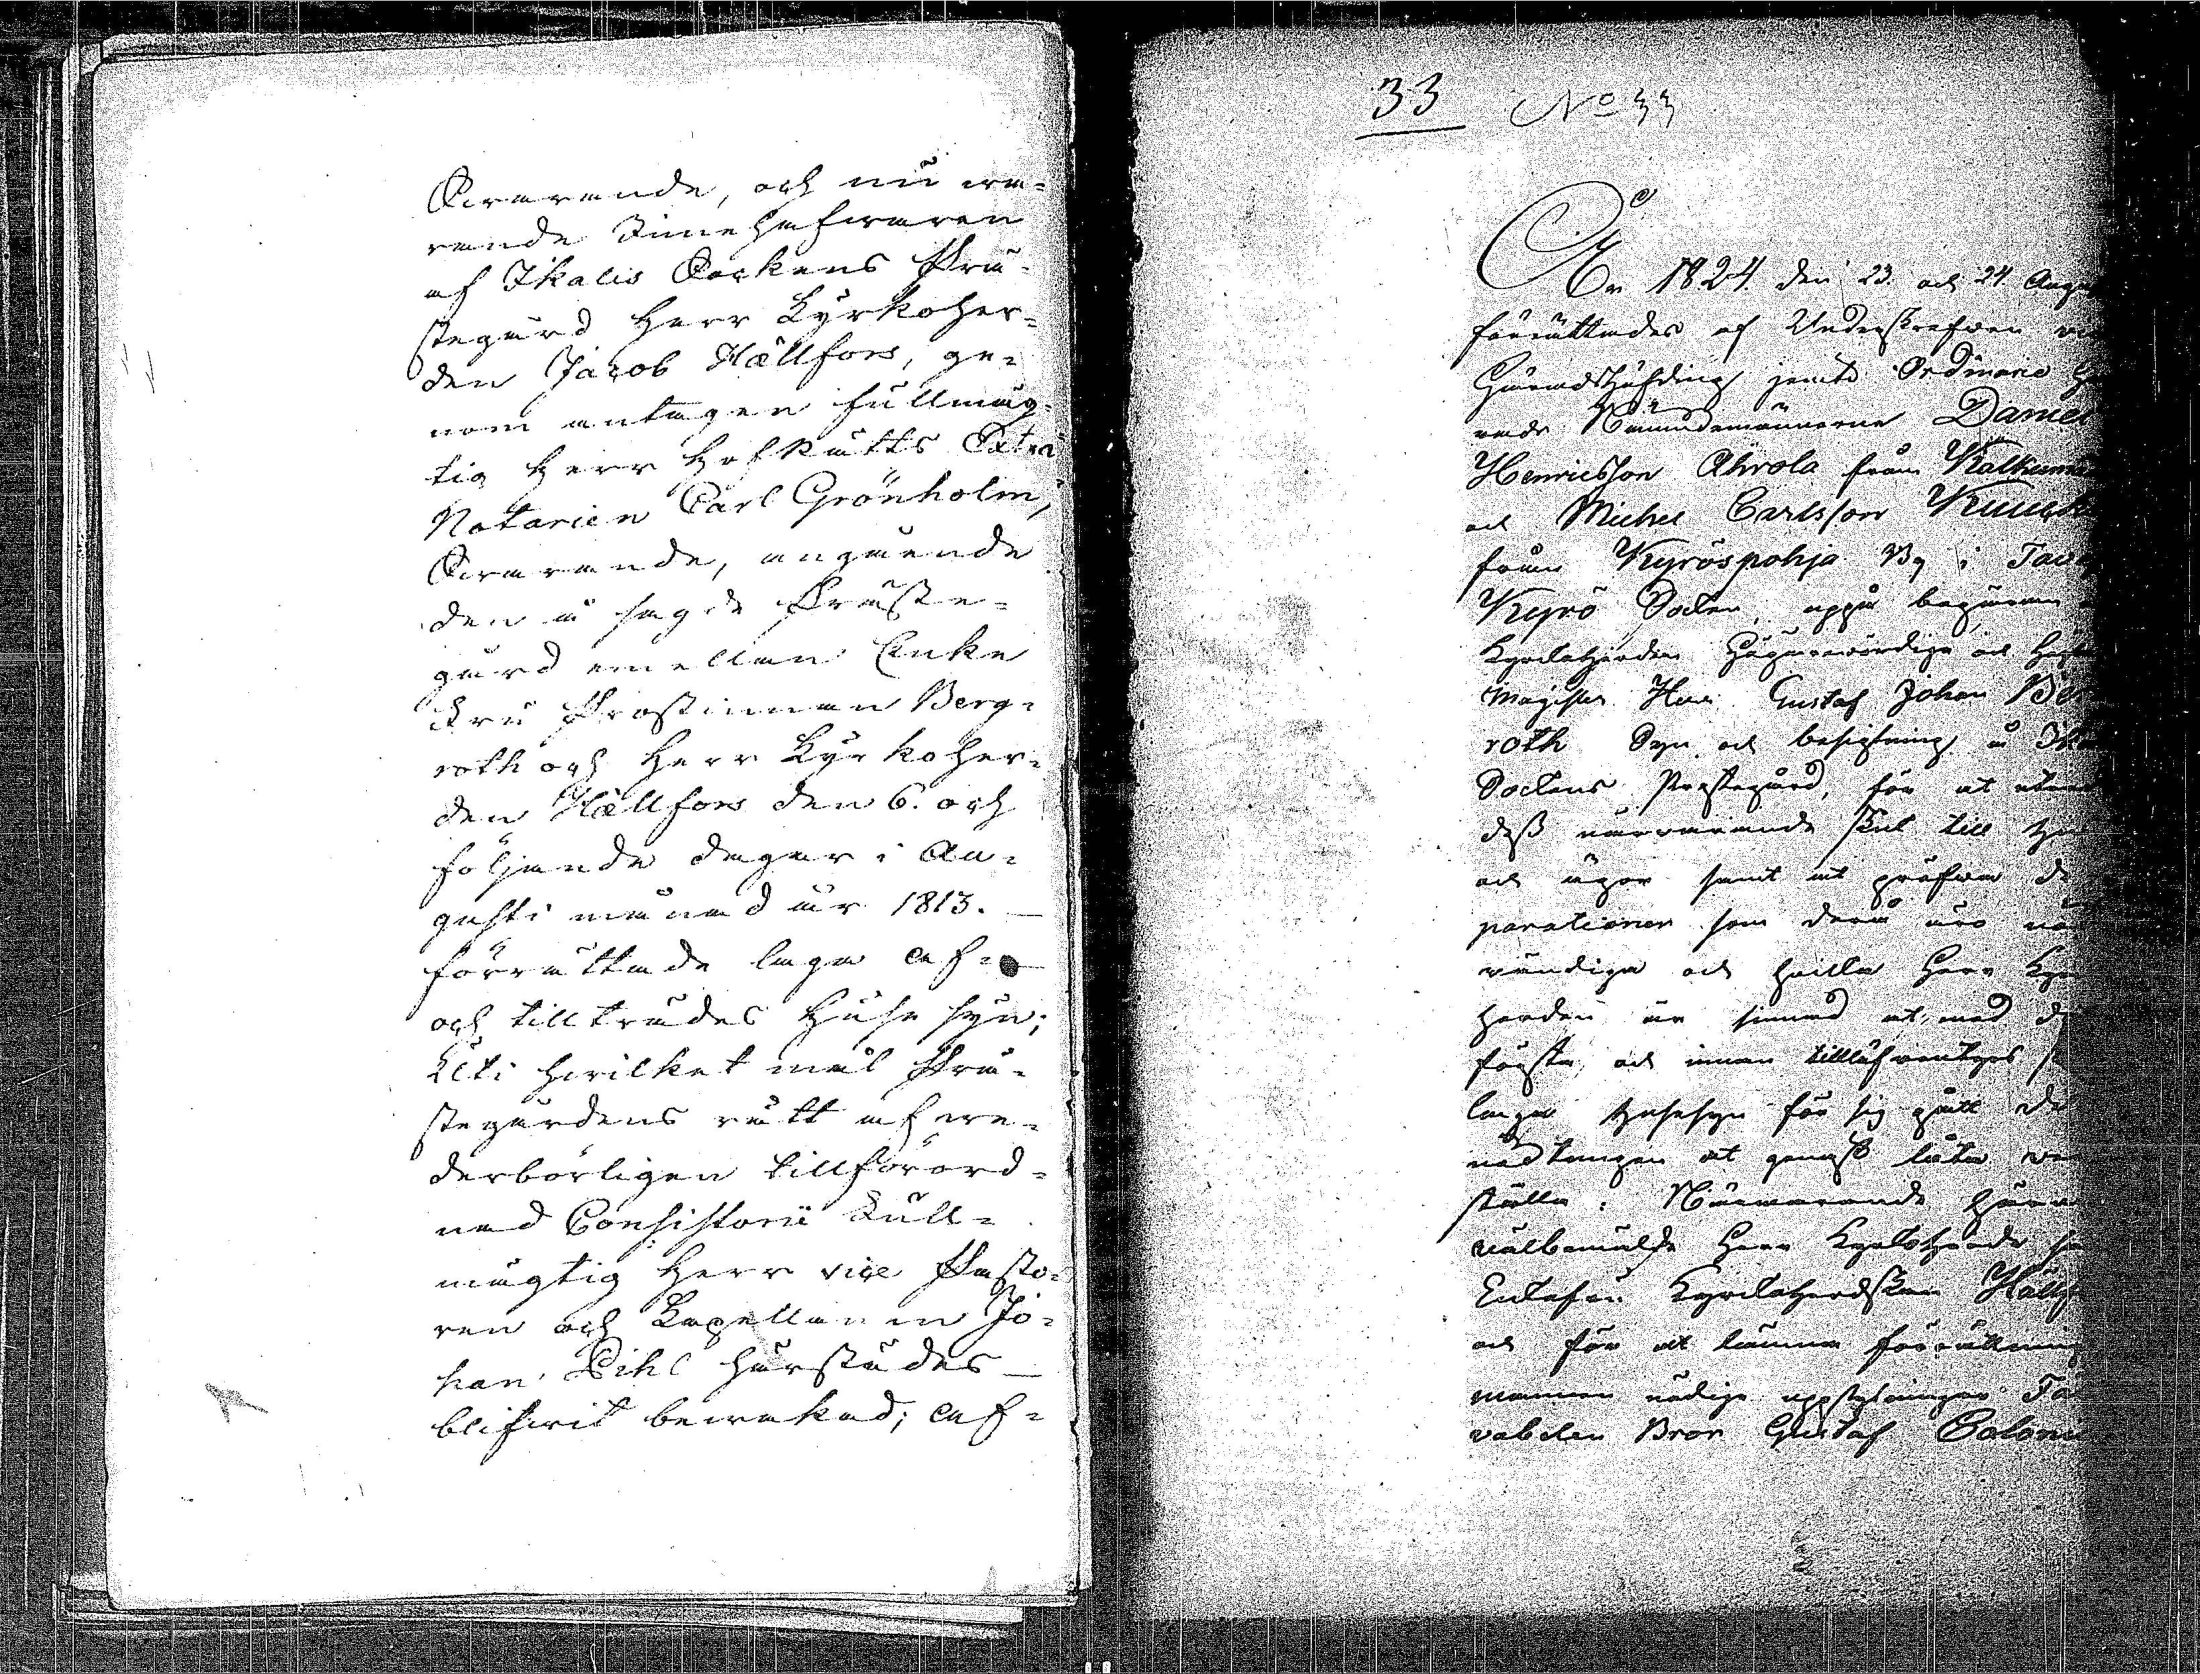 Swarande, och nu wa-
rande Innehafwaren
af Ikalis Sockens Prä-
stegård Herr Kyrkoher-
den Jacob Hællfors, ge-
nom antagen fullmäg-
tig Herr HofRätts Extra
Notarien Carl Grönholm,
Swarande, angående
den å sagde Präste-
gård emellan Enke
Fru Prostinnan Berg-
roth och Herr Kyrkoher-
den Hællfors den 6. och
följande dagar i Au-
gusti månad år 1813.
förrättade laga Af-
och tillträdes Huse syn;
Uti hwilket mål Prä-
stegårdens rätt af we-
derbörligen tillförord-
nad Consistorii Full-
mägtig Herr vice Pasto-
ren och Kapellanen Jo-
han Pihl härstädes
blifwit bewakad; Af-
33 No 33
År 1824 den 23. och 24 Augu
förrättades af Underskrefwen vi
Häradshöfding jemte Ordinarie
Nämndemännerne Daniel
Henricsson Ahrola från
och Michel Carlsson
från Kyröspohja By i Tav
Kyrö Socken, uppå begäran
Kyrkoherden Högärewördige och
Magister Herr Gustaf Johan Be
roth Syn och besigtning å Ik
Sockens Prestegård, för at
dess närvarande skick till
och ägor samt at pröfwa de
parationer som derå äro nö
vändiga och hwilka Herr Kyr
herden är sinnad at, med d
första, och innan
laga Husesyn för sig gått
at genast låta
ställa: Närwarande
wälbemälte Herr Kyrkoherde
Enkefru Kyrkoherdskan Hällf
och för at lämna förrättning
mannen nödige upplysningar
Bror Gustaf